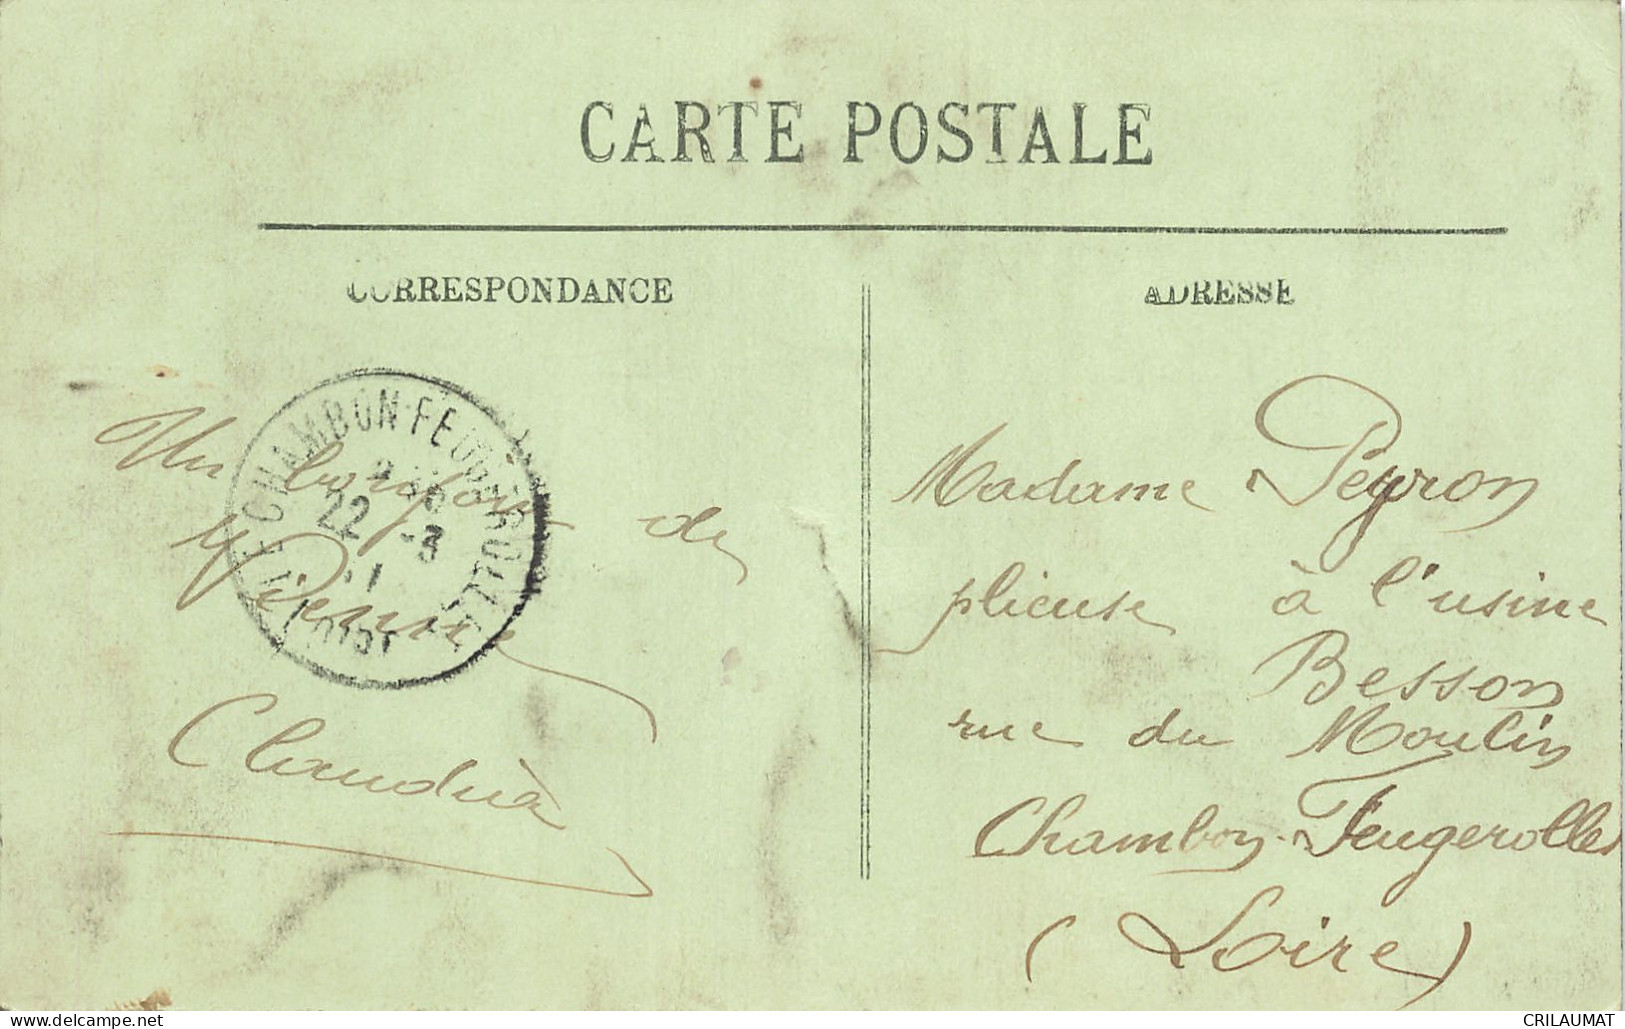 CARTE POSTALE
CORRESPONDANCE
ADRESSE
LE CHAMBON-FEUGEROLLES
22 -3
LOIRE
Un bonjour de
Vienne
Claudia
Madame Peyron
plieuse à l'usine
Besson
rue du Moulin
Chambon-Feugerolles
(Loire)
https://www.delcampe.net
CRILAUMAT